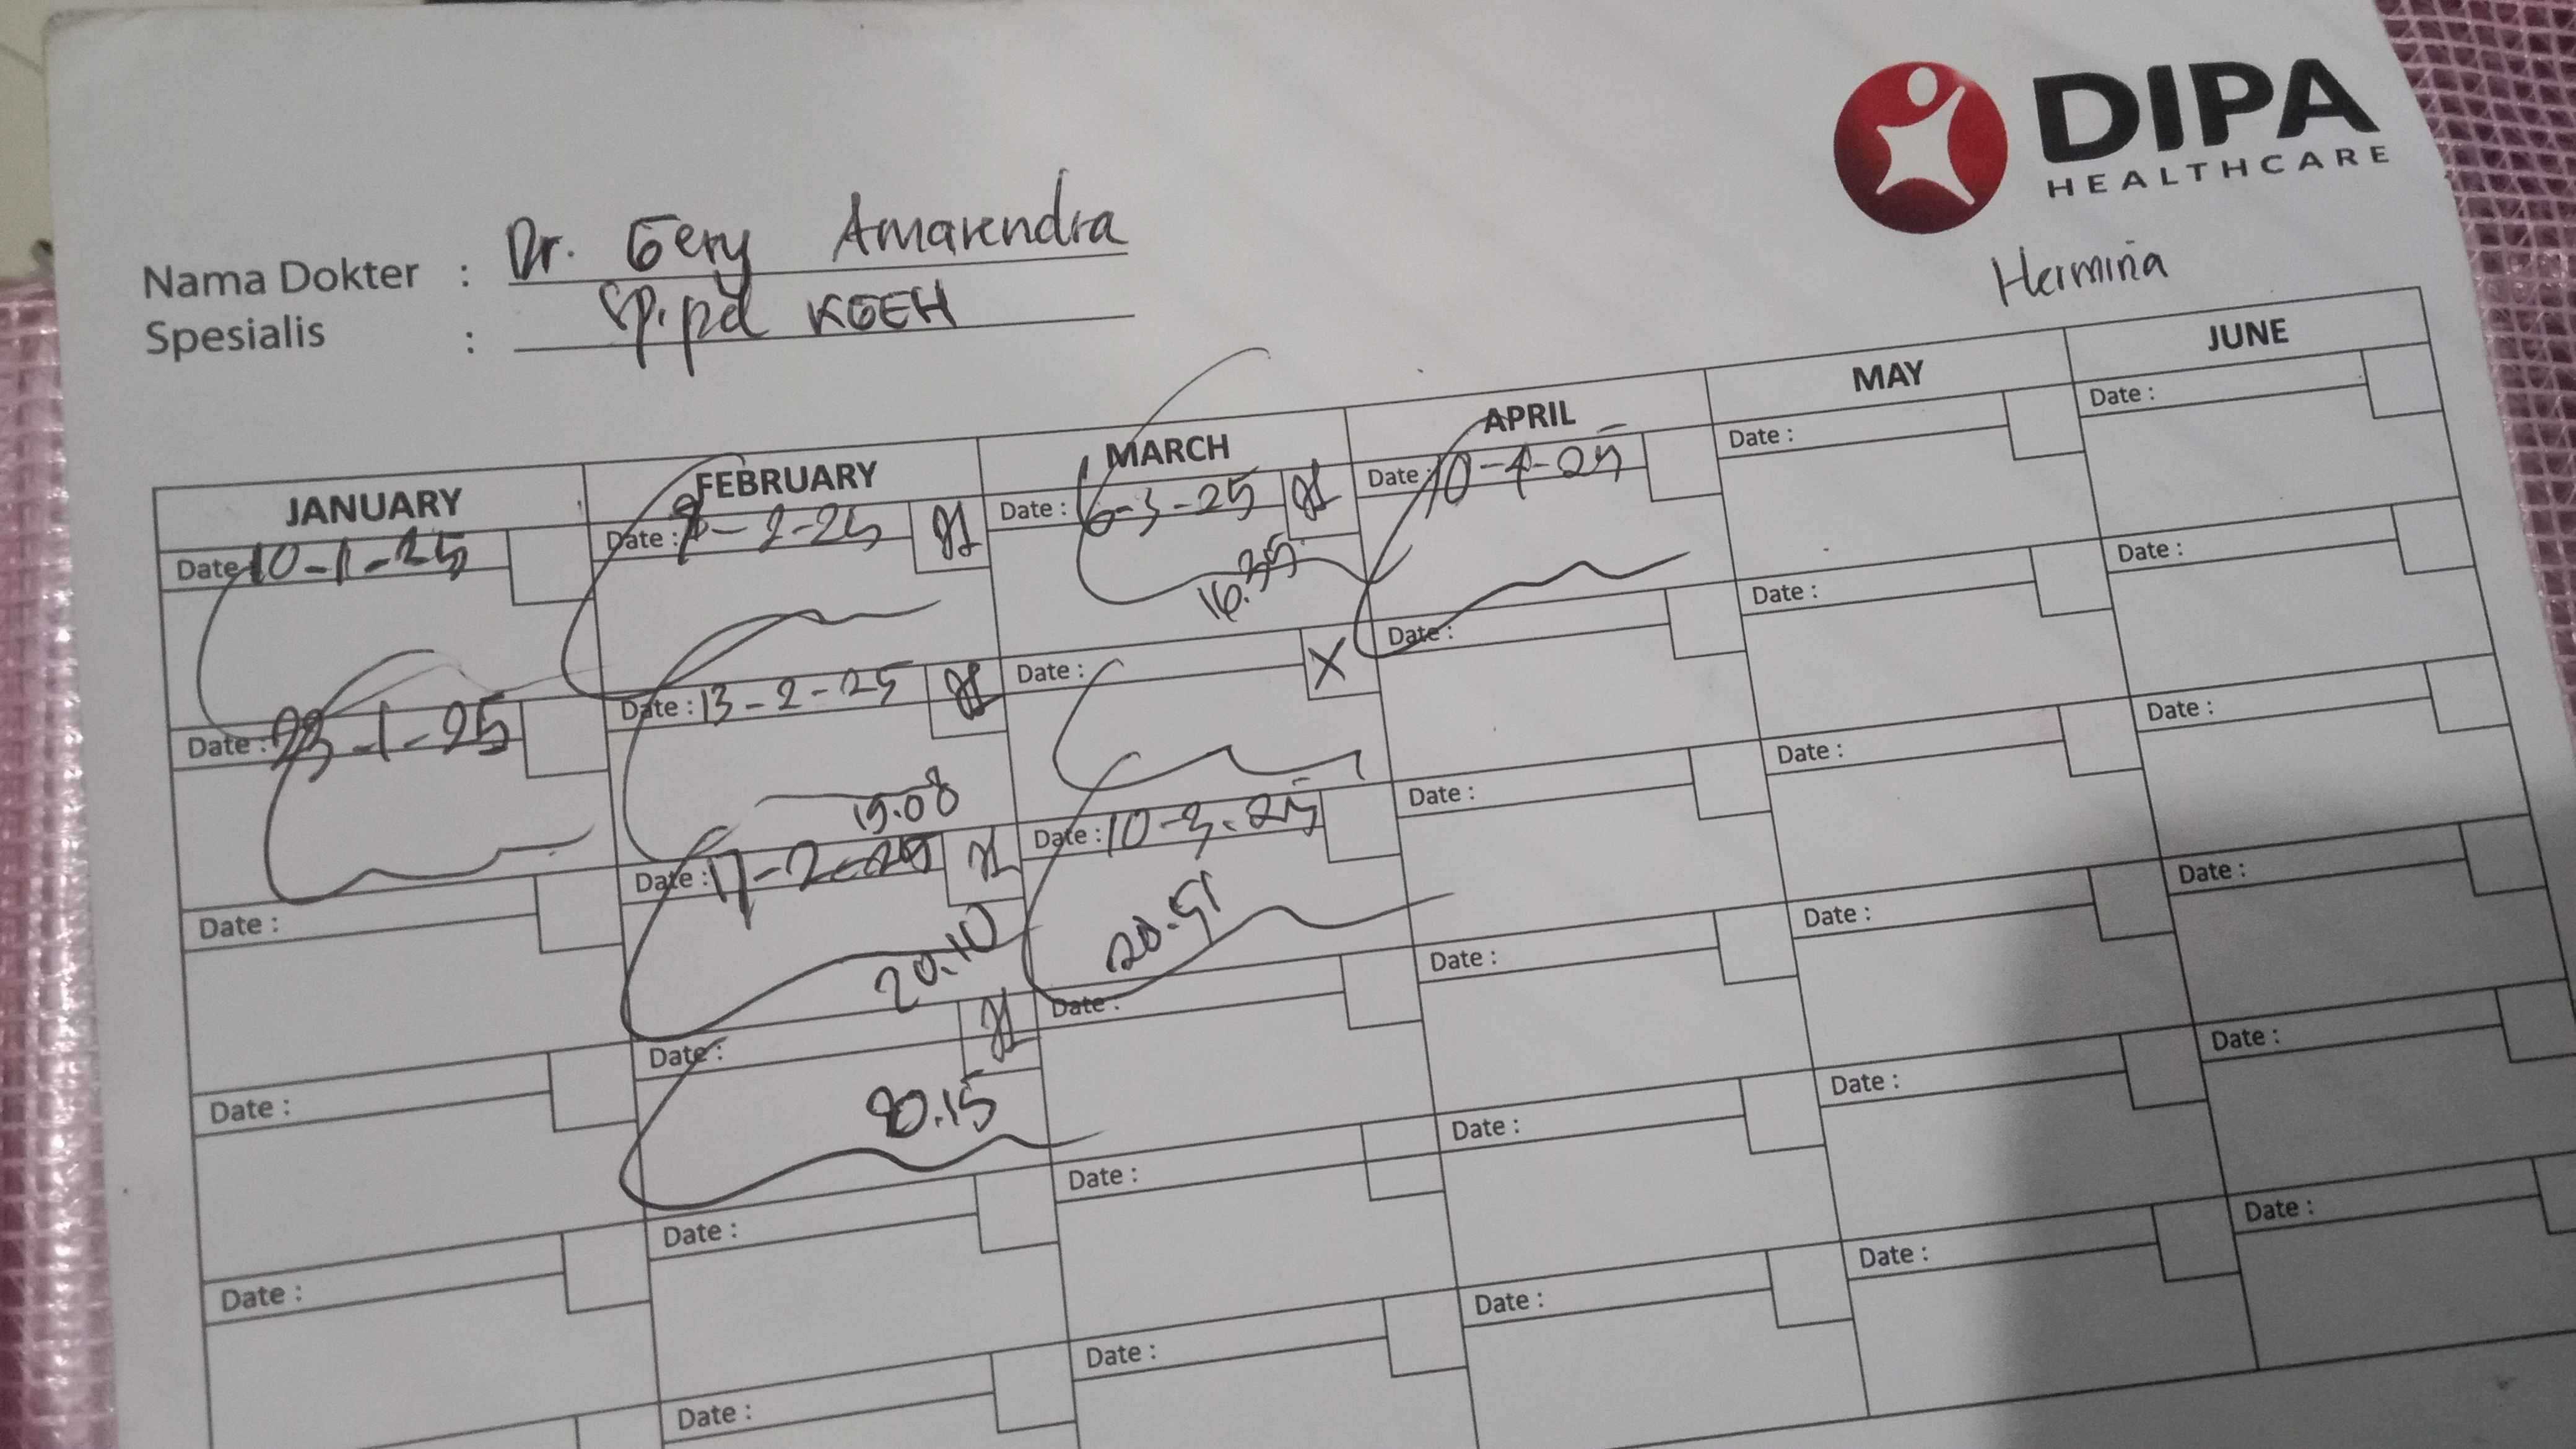 DIPA
HEALTHCARE
Hermina
Nama Dokter : Dr. Gery Amarendra
Spesialis : Sp.pd KGEH
JANUARY FEBRUARY MARCH APRIL MAY JUNE
Date: 10-1-25 Date: -2-25 Date: 6-3-25 Date: 10-4-25 Date: Date:
16.35
Date: 23-1-25 Date: 13-2-25 Date: X Date: Date: Date:
19.08
Date: Date: 17-2-25 Date: 10-3-25 Date: Date: Date:
20.10 20.51
Date: Date: Date: Date: Date: Date:
20.15
Date: Date: Date: Date: Date: Date:
Date: Date: Date: Date: Date: